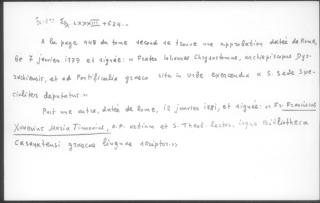 LXXXIII + 624..
A la page 448 du tome second se trouve une approbation datée de Rome,
le 7 janvier 1779 et signée: « Frater Iohannes Chrysostomus, archiepiscopus Dyr-
rachiensis, et ad Pontificalia graeco ritu in urbe exercenda a S. Sede spe-
cialiter deputatus »
Puit une autre, datée de Rome, 12 janvier 1781, et signée: « Fr. Franciscus
Xaverius Maria, O.P. et S. Theol. lector, Bibliotheca
Casanatensi graecae linguae scriptor.»